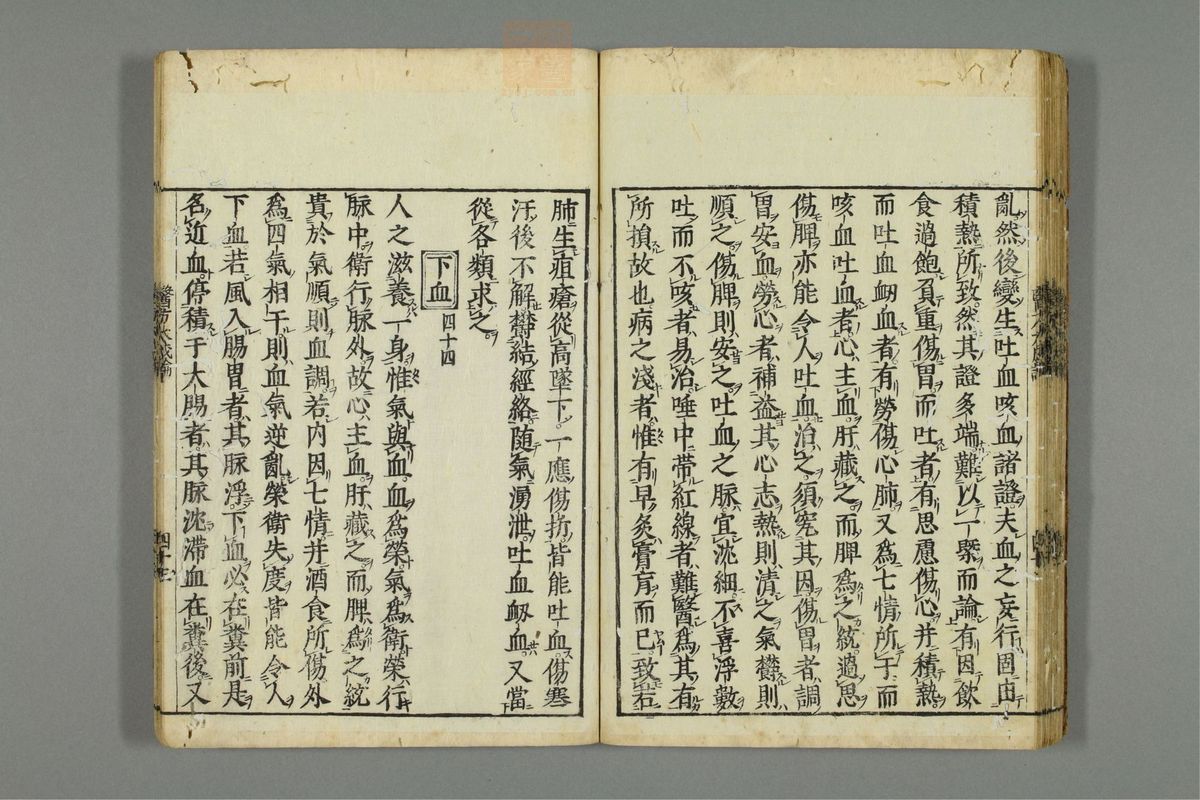 亂然後變生吐血咳血諸證夫血之妄行固由
積熱所致然其證多端難以一槩而論有因飲
食過飽負重傷胃而吐者有思慮傷心并積熱
而吐血衂血者有勞傷心肺又為七情所干而
咳血吐血者心主血肝藏之而脾為之統過思
傷脾亦能令人吐血治之須究其因傷胃者調
胃安血勞心者補益其心志熱則清之氣欝則
順之傷脾則安之吐血之脉宜沈細不喜浮數
吐而不咳者易治唾中帶紅線者難醫為其有
所損故也病之淺者惟有早灸膏肓而已致若
肺生疽瘡從高墜下一應傷折皆能吐血傷寒
汗後不解欝結經絡随氣湧泄吐血衂血又當
從各類求之
下血 四十四
人之滋養一身惟氣與血血為榮氣為衛榮行
脉中衛行脉外故心主血肝藏之而脾為之統
貴於氣順則血調若内因七情并酒食所傷外
為四氣相干則血氣逆亂榮衛失度皆能令人
下血若風入腸胃者其脉浮下血必在糞前是
名近血停積于大腸者其脉沈滯血在糞後又